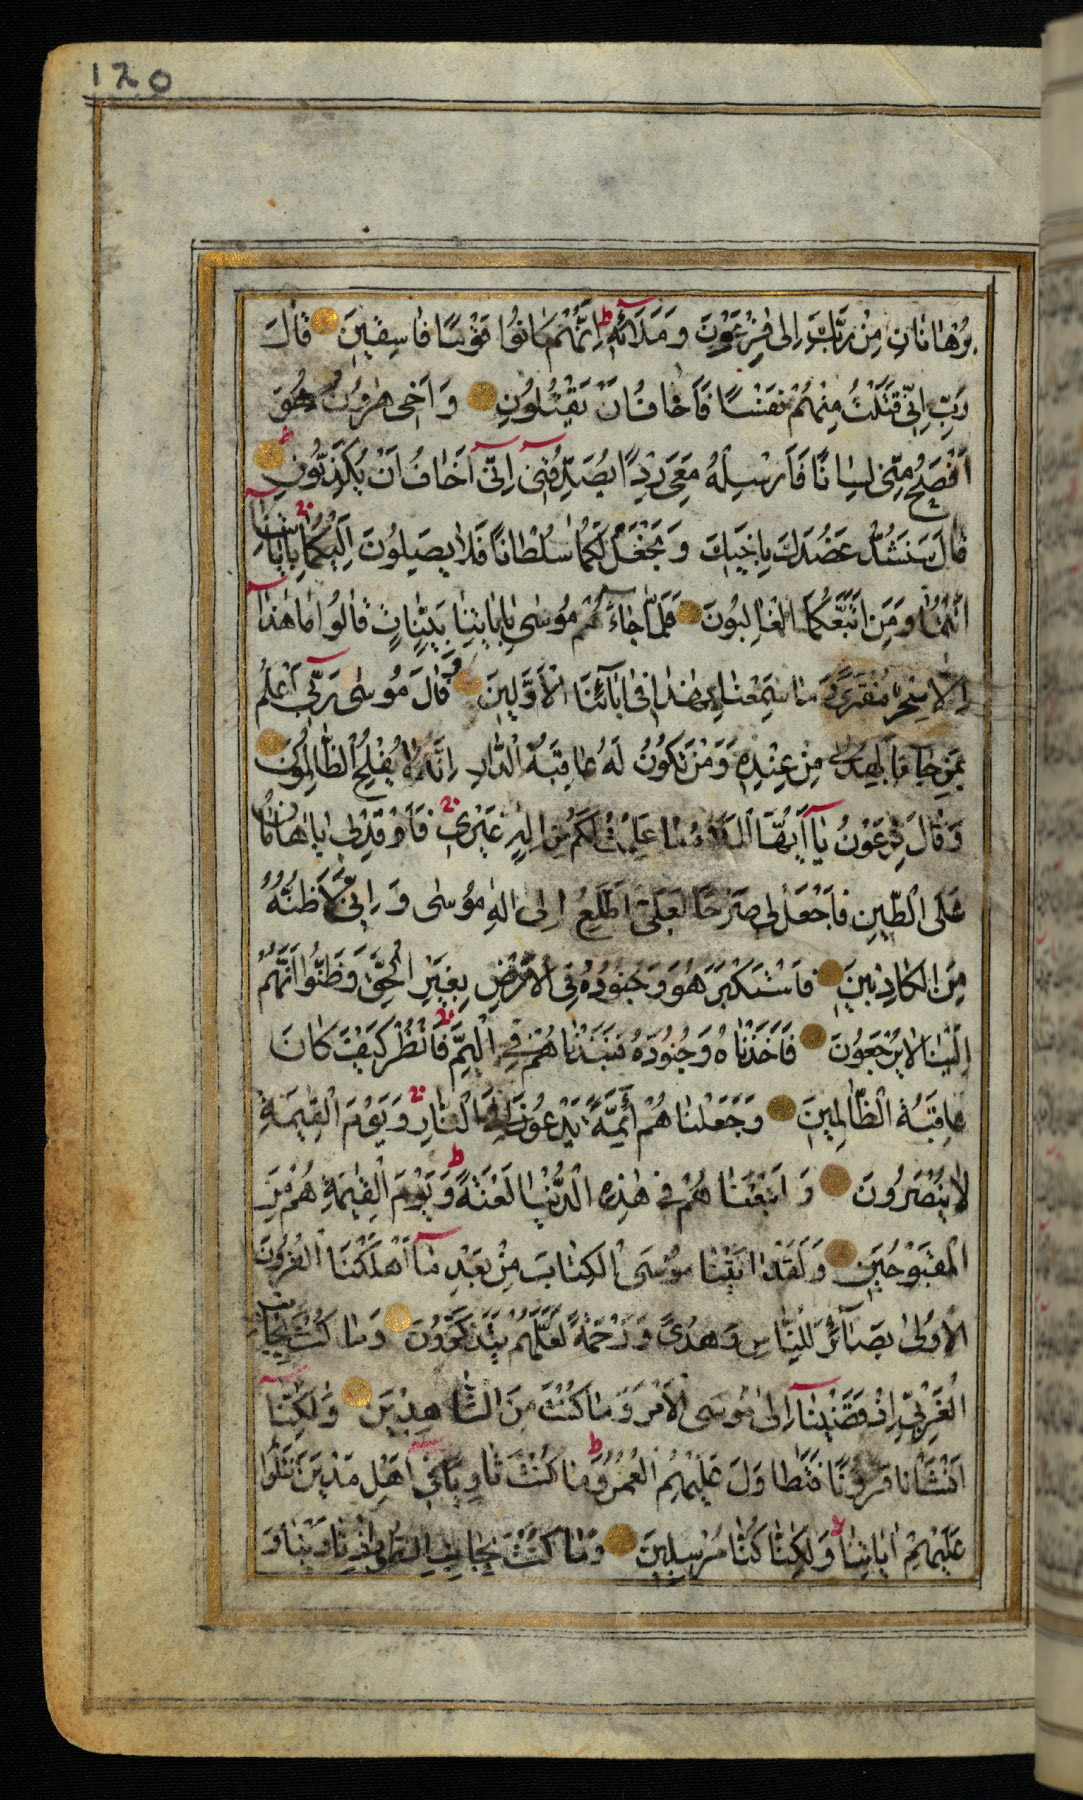 120
بُرْهَانَانِ مِنْ رَبِّكَ اِلٰى فِرْعَوْنَ وَمَلَائِهٖ ط اِنَّهُمْ كَانُوا قَوْمًا فَاسِقِينَ قَالَ
رَبِّ اِنِّى قَتَلْتُ مِنْهُمْ نَفْسًا فَاَخَافُ اَنْ يَقْتُلُونِ وَاَخِى هٰرُونُ هُوَ
اَفْصَحُ مِنِّى لِسَانًا فَاَرْسِلْهُ مَعِىَ رِدْءًا يُصَدِّقُنِىٓ اِنِّىٓ اَخَافُ اَنْ يُكَذِّبُونِ ط
قَالَ سَنَشُدُّ عَضُدَكَ بِاَخِيكَ وَنَجْعَلُ لَكُمَا سُلْطَانًا فَلَا يَصِلُونَ اِلَيْكُمَا بِاٰيَاتِنَا
اَنْتُمَا وَمَنِ اتَّبَعَكُمَا الْغَالِبُونَ فَلَمَّا جَاءَهُمْ مُوسٰى بِاٰيَاتِنَا بَيِّنَاتٍ قَالُوا مَا هٰذَآ
اِلَّا سِحْرٌ مُفْتَرًى وَمَا سَمِعْنَا بِهٰذَا فِىٓ اٰبَآئِنَا الْاَوَّلِينَ وَقَالَ مُوسٰى رَبِّىٓ اَعْلَمُ
بِمَنْ جَآءَ بِالْهُدٰى مِنْ عِنْدِهٖ وَمَنْ تَكُونُ لَهُ عَاقِبَةُ الدَّارِ اِنَّهُ لَا يُفْلِحُ الظَّالِمُونَ
وَقَالَ فِرْعَوْنُ يَآ اَيُّهَا الْمَلَاُ مَا عَلِمْتُ لَكُمْ مِنْ اِلٰهٍ غَيْرِى فَاَوْقِدْ لِى يَا هَامَانُ
عَلَى الطِّينِ فَاجْعَلْ لِى صَرْحًا لَعَلِّىٓ اَطَّلِعُ اِلٰى اِلٰهِ مُوسٰى وَاِنِّى لَاَظُنُّهُ
مِنَ الْكَاذِبِينَ فَاسْتَكْبَرَ هُوَ وَجُنُودُهُ فِى الْاَرْضِ بِغَيْرِ الْحَقِّ وَظَنُّوا اَنَّهُمْ
اِلَيْنَا لَا يُرْجَعُونَ فَاَخَذْنَاهُ وَجُنُودَهُ فَنَبَذْنَاهُمْ فِى الْيَمِّ فَانْظُرْ كَيْفَ كَانَ
عَاقِبَةُ الظَّالِمِينَ وَجَعَلْنَاهُمْ اَئِمَّةً يَدْعُونَ اِلَى النَّارِ وَيَوْمَ الْقِيٰمَةِ
لَا يُنْصَرُونَ وَاَتْبَعْنَاهُمْ فِى هٰذِهِ الدُّنْيَا لَعْنَةً ط وَيَوْمَ الْقِيٰمَةِ هُمْ مِنَ
الْمَقْبُوحِينَ وَلَقَدْ اٰتَيْنَا مُوسَى الْكِتَابَ مِنْ بَعْدِ مَآ اَهْلَكْنَا الْقُرُونَ
الْاُولٰى بَصَآئِرَ لِلنَّاسِ وَهُدًى وَرَحْمَةً لَعَلَّهُمْ يَتَذَكَّرُونَ وَمَا كُنْتَ بِجَانِبِ
الْغَرْبِىِّ اِذْ قَضَيْنَآ اِلٰى مُوسَى الْاَمْرَ وَمَا كُنْتَ مِنَ الشَّاهِدِينَ وَلٰكِنَّآ
اَنْشَأْنَا قُرُونًا فَتَطَاوَلَ عَلَيْهِمُ الْعُمُرُ ط وَمَا كُنْتَ ثَاوِيًا فِىٓ اَهْلِ مَدْيَنَ تَتْلُوا
عَلَيْهِمْ اٰيَاتِنَا لا وَلٰكِنَّا كُنَّا مُرْسِلِينَ وَمَا كُنْتَ بِجَانِبِ الطُّورِ اِذْ نَادَيْنَا وَ